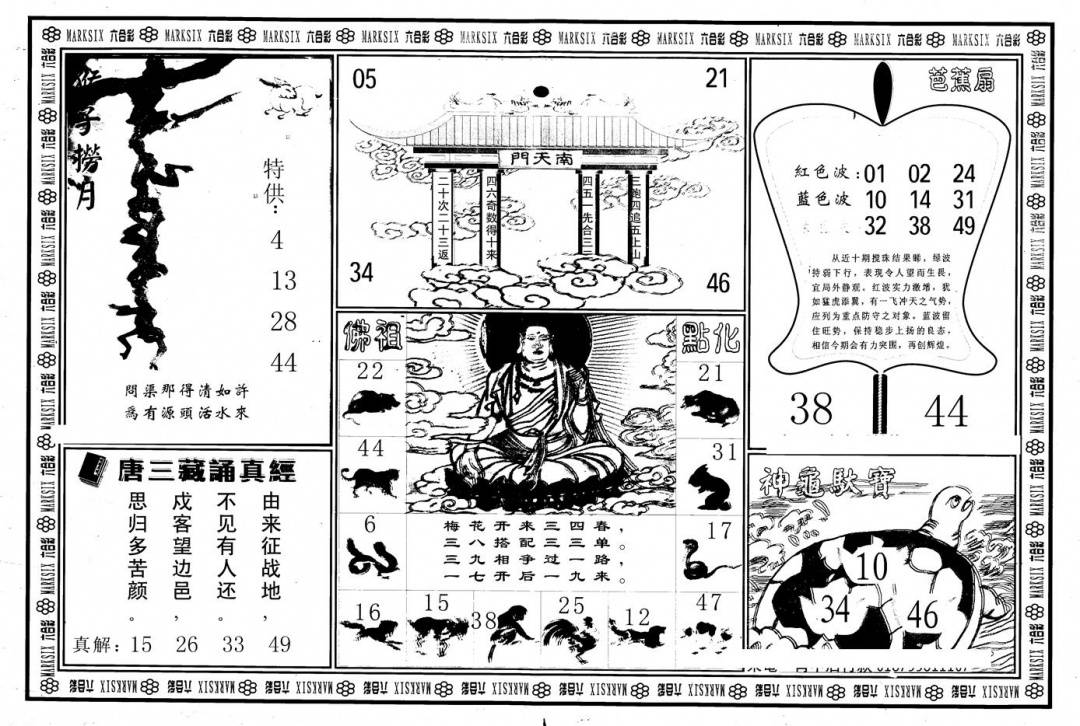 MARKSIX 六合彩 MARKSIX 六合彩 MARKSIX 六合彩 MARKSIX 六合彩 MARKSIX 六合彩 MARKSIX 六合彩 MARKSIX 六合彩 MARKSIX 六合彩 MARKSIX 六合彩 MARKSIX 六合彩
猴子撈月
特供：
4
13
28
44
問渠那得清如許
為有源頭活水來
唐三藏誦真經
由来征战地，
不见有人还。
戍客望边邑，
思归多苦颜。
真解：15 26 33 49
05 21
南天門
二十次二十三返
四六奇数得十来
四五一先合三三
三跑四追五上山
34 46
佛祖 點化
22 21
44 31
6 17
梅花开来三四春，
三八搭配三三单。
三九相争过一路，
一七开后一九来。
16 15 38 25 12 47
芭蕉扇
紅色波：01 02 24
藍色波 10 14 31
32 38 49
从近十期搅珠结果睇，绿波
持弱下行，表现令人望而生畏，
宜局外静观。红波实力激增，犹
如猛虎添翼，有一飞冲天之气势，
应列为重点防守之对象。蓝波留
住旺势，保持稳步上扬的良态，
相信今期会有力突围，再创辉煌。
38 44
神龜馱寶
10
34 46